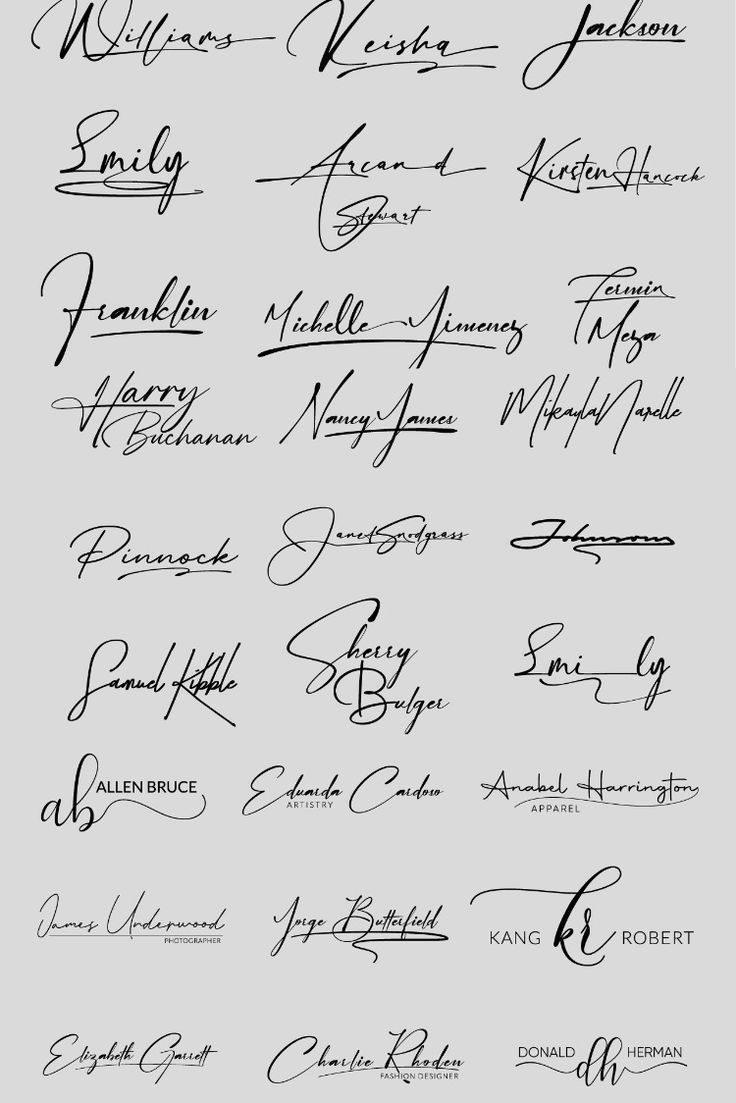 Williams
Keisha
Jackson
Emily
Arcand
Stewart
Kirsten Hancock
Franklin
Michelle Yimenez
Fermin
Meza
Harry
Buchanan
Nancy James
Mikayla Narelle
Pinnock
Janet Snodgrass
Johnson
Samuel Kibble
Sherry
Bulger
Emi ly
ab ALLEN BRUCE
Eduarda Cardoso
ARTISTRY
Anabel Harrington
APPAREL
James Underwood
PHOTOGRAPHER
Jorge Butterfield
KANG kr ROBERT
Elizabeth Garrett
Charlie Rhoden
FASHION DESIGNER
DONALD dh HERMAN